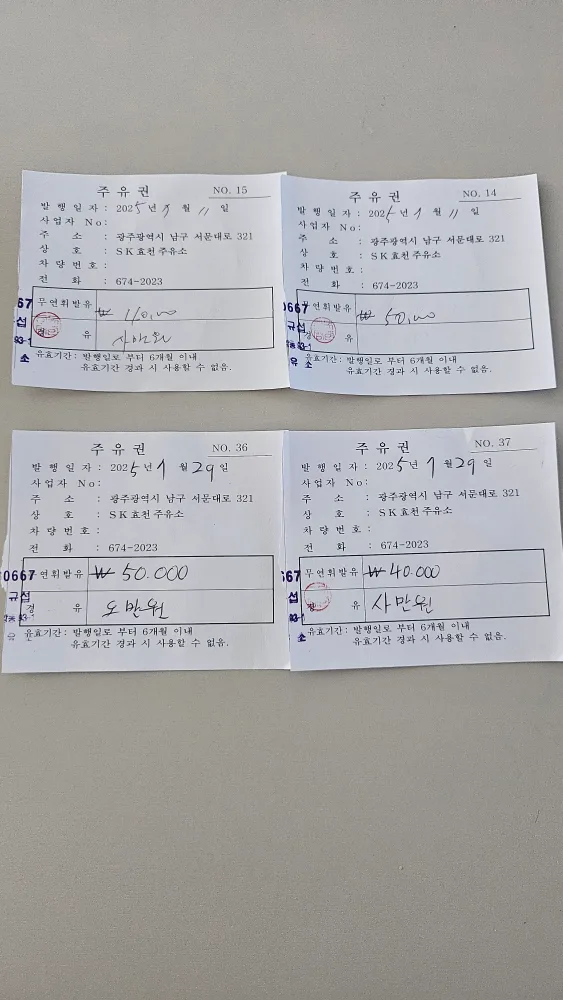 주 유 권 NO. 15
발 행 일 자 : 2025년 1 월 11 일
사 업 자 No:
주 소 : 광주광역시 남구 서문대로 321
상 호 : SK효천주유소
차 량 번 호 :
전 화 : 674-2023
무연휘발유
경 유 사만원
유효기간: 발행일로 부터 6개월 이내
유효기간 경과 시 사용할 수 없음.
주 유 권 NO. 14
발 행 일 자 : 2025년 1 월 11 일
사 업 자 No:
주 소 : 광주광역시 남구 서문대로 321
상 호 : SK효천주유소
차 량 번 호 :
전 화 : 674-2023
무연휘발유 ₩ 50,000
경 유
유효기간: 발행일로 부터 6개월 이내
유효기간 경과 시 사용할 수 없음.
주 유 권 NO. 36
발 행 일 자 : 2025년 1 월 29일
사 업 자 No:
주 소 : 광주광역시 남구 서문대로 321
상 호 : SK효천주유소
차 량 번 호 :
전 화 : 674-2023
무연휘발유 ₩ 50.000
경 유 오만원
유효기간: 발행일로 부터 6개월 이내
유효기간 경과 시 사용할 수 없음.
주 유 권 NO. 37
발 행 일 자 : 2025년 1 월 29일
사 업 자 No:
주 소 : 광주광역시 남구 서문대로 321
상 호 : SK효천주유소
차 량 번 호 :
전 화 : 674-2023
무연휘발유 ₩ 40.000
경 유 사만원
유효기간: 발행일로 부터 6개월 이내
유효기간 경과 시 사용할 수 없음.